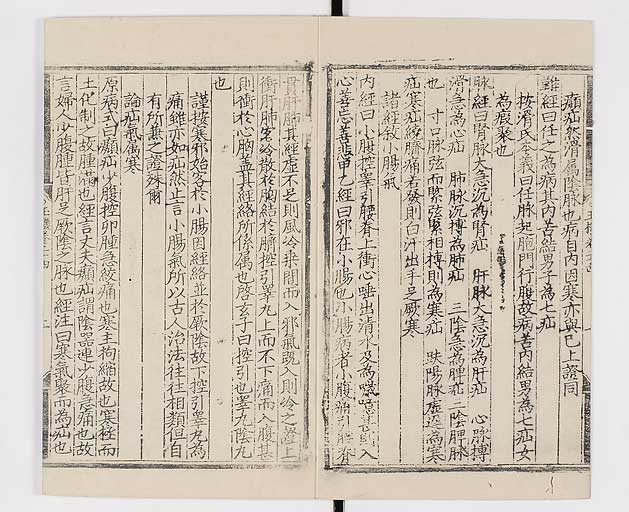 癩疝然滑屬陰脉也病自内因寒亦與已上證同
難經曰任之為病其内苦結男子為七疝
按滑氏本義曰任脉起胞門行腹故病苦内結男為七疝女
為瘕聚也
脉經曰腎脉大急沉為腎疝 肝脉大急沉為肝疝 心脉搏
滑急為心疝 肺脉沉搏為肺疝 三陰急為脾疝 三陰脾脉
也 寸口脉弦而緊弦緊相搏則為寒疝 趺陽脉虛遲為寒
疝寒疝繞臍痛若發則白汗出手足厥寒
諸經敘小腸氣
内經曰小腹控睪引腰脊上衝心唾出清水及為噦噫甚則入
心善忘善悲甲乙經曰邪在小腸也小腸病者小腹痛引腰脊
貫肝肺其經虛不足則風冷乗間而入邪氣既入則冷之證上
衝肝肺客冷散於胸結於臍控引睪丸上而不下痛而入腹甚
則衝於心胸盖其經絡所係属也啓玄子曰控引也睪丸陰丸
也
謹按寒邪始客於小腸因經絡並於厥陰故下控引睪丸為
痛雖亦如疝然止言小腸氣所以古人治法徃徃相類但自
有所兼之證殊爾
論疝氣属寒
原病式曰㿗疝少腹控卵腫急絞痛也寒主拘縮故也寒極而
土化制之故腫滿也經言丈夫㿗疝謂陰器連少腹急痛也故
言婦人少腹腫皆肝足厥陰之脉也經注曰寒氣聚而為疝也